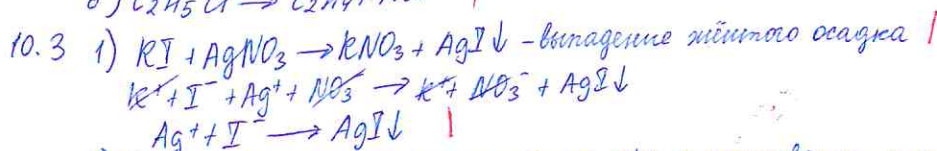 б) C2H5Cl → C2H4
10.3 1) KI + AgNO₃ → KNO₃ + AgI↓ – выпадение жёлтого осадка
K⁺ + I⁻ + Ag⁺ + NO₃⁻ → K⁺ + NO₃⁻ + AgI↓
Ag⁺ + I⁻ → AgI↓